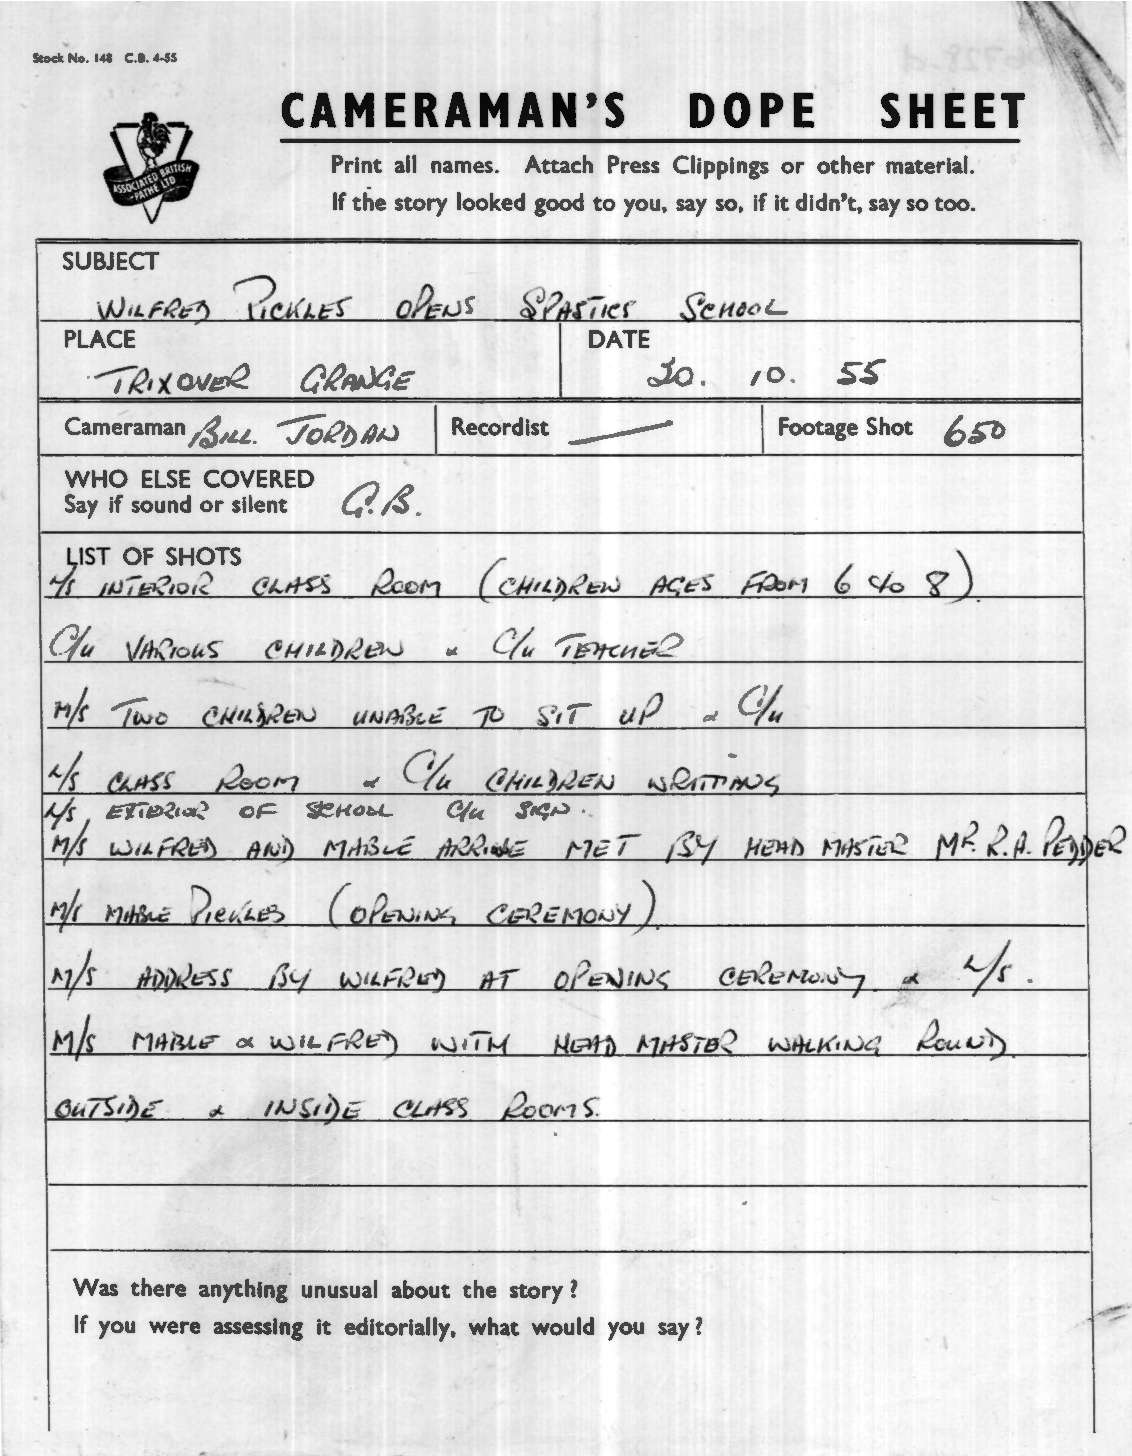 Stock No. 148 C.B. 4-55
CAMERAMAN'S DOPE SHEET
ASSOCIATED BRITISH
PATHE LTD
Print all names. Attach Press Clippings or other material.
If the story looked good to you, say so, if it didn't, say so too.
SUBJECT
WILFRED PICKLES OPENS SPASTICS SCHOOL
PLACE DATE
TRIXOVER GRANGE 20. 10. 55
Cameraman BILL JORDAN Recordist — Footage Shot 650
WHO ELSE COVERED
Say if sound or silent G.B.
LIST OF SHOTS
L/S INTERIOR CLASS ROOM (CHILDREN AGES FROM 6 to 8)
C/u VARIOUS CHILDREN & C/u TEACHER
M/S TWO CHILDREN UNABLE TO SIT UP & C/u
L/S CLASS ROOM & C/u CHILDREN WRITTING
L/S, EXTERIOR OF SCHOOL C/u SIGN.
M/S WILFRED AND MABLE ARRIVE MET BY HEAD MASTER MR. R.A. PEDDER
M/S MABLE PICKLES (OPENING CEREMONY)
M/S ADDRESS BY WILFRED AT OPENING CEREMONY & L/S.
M/S MABLE & WILFRED WITH HEAD MASTER WALKING ROUND
OUTSIDE & INSIDE CLASS ROOMS.
Was there anything unusual about the story?
If you were assessing it editorially, what would you say?